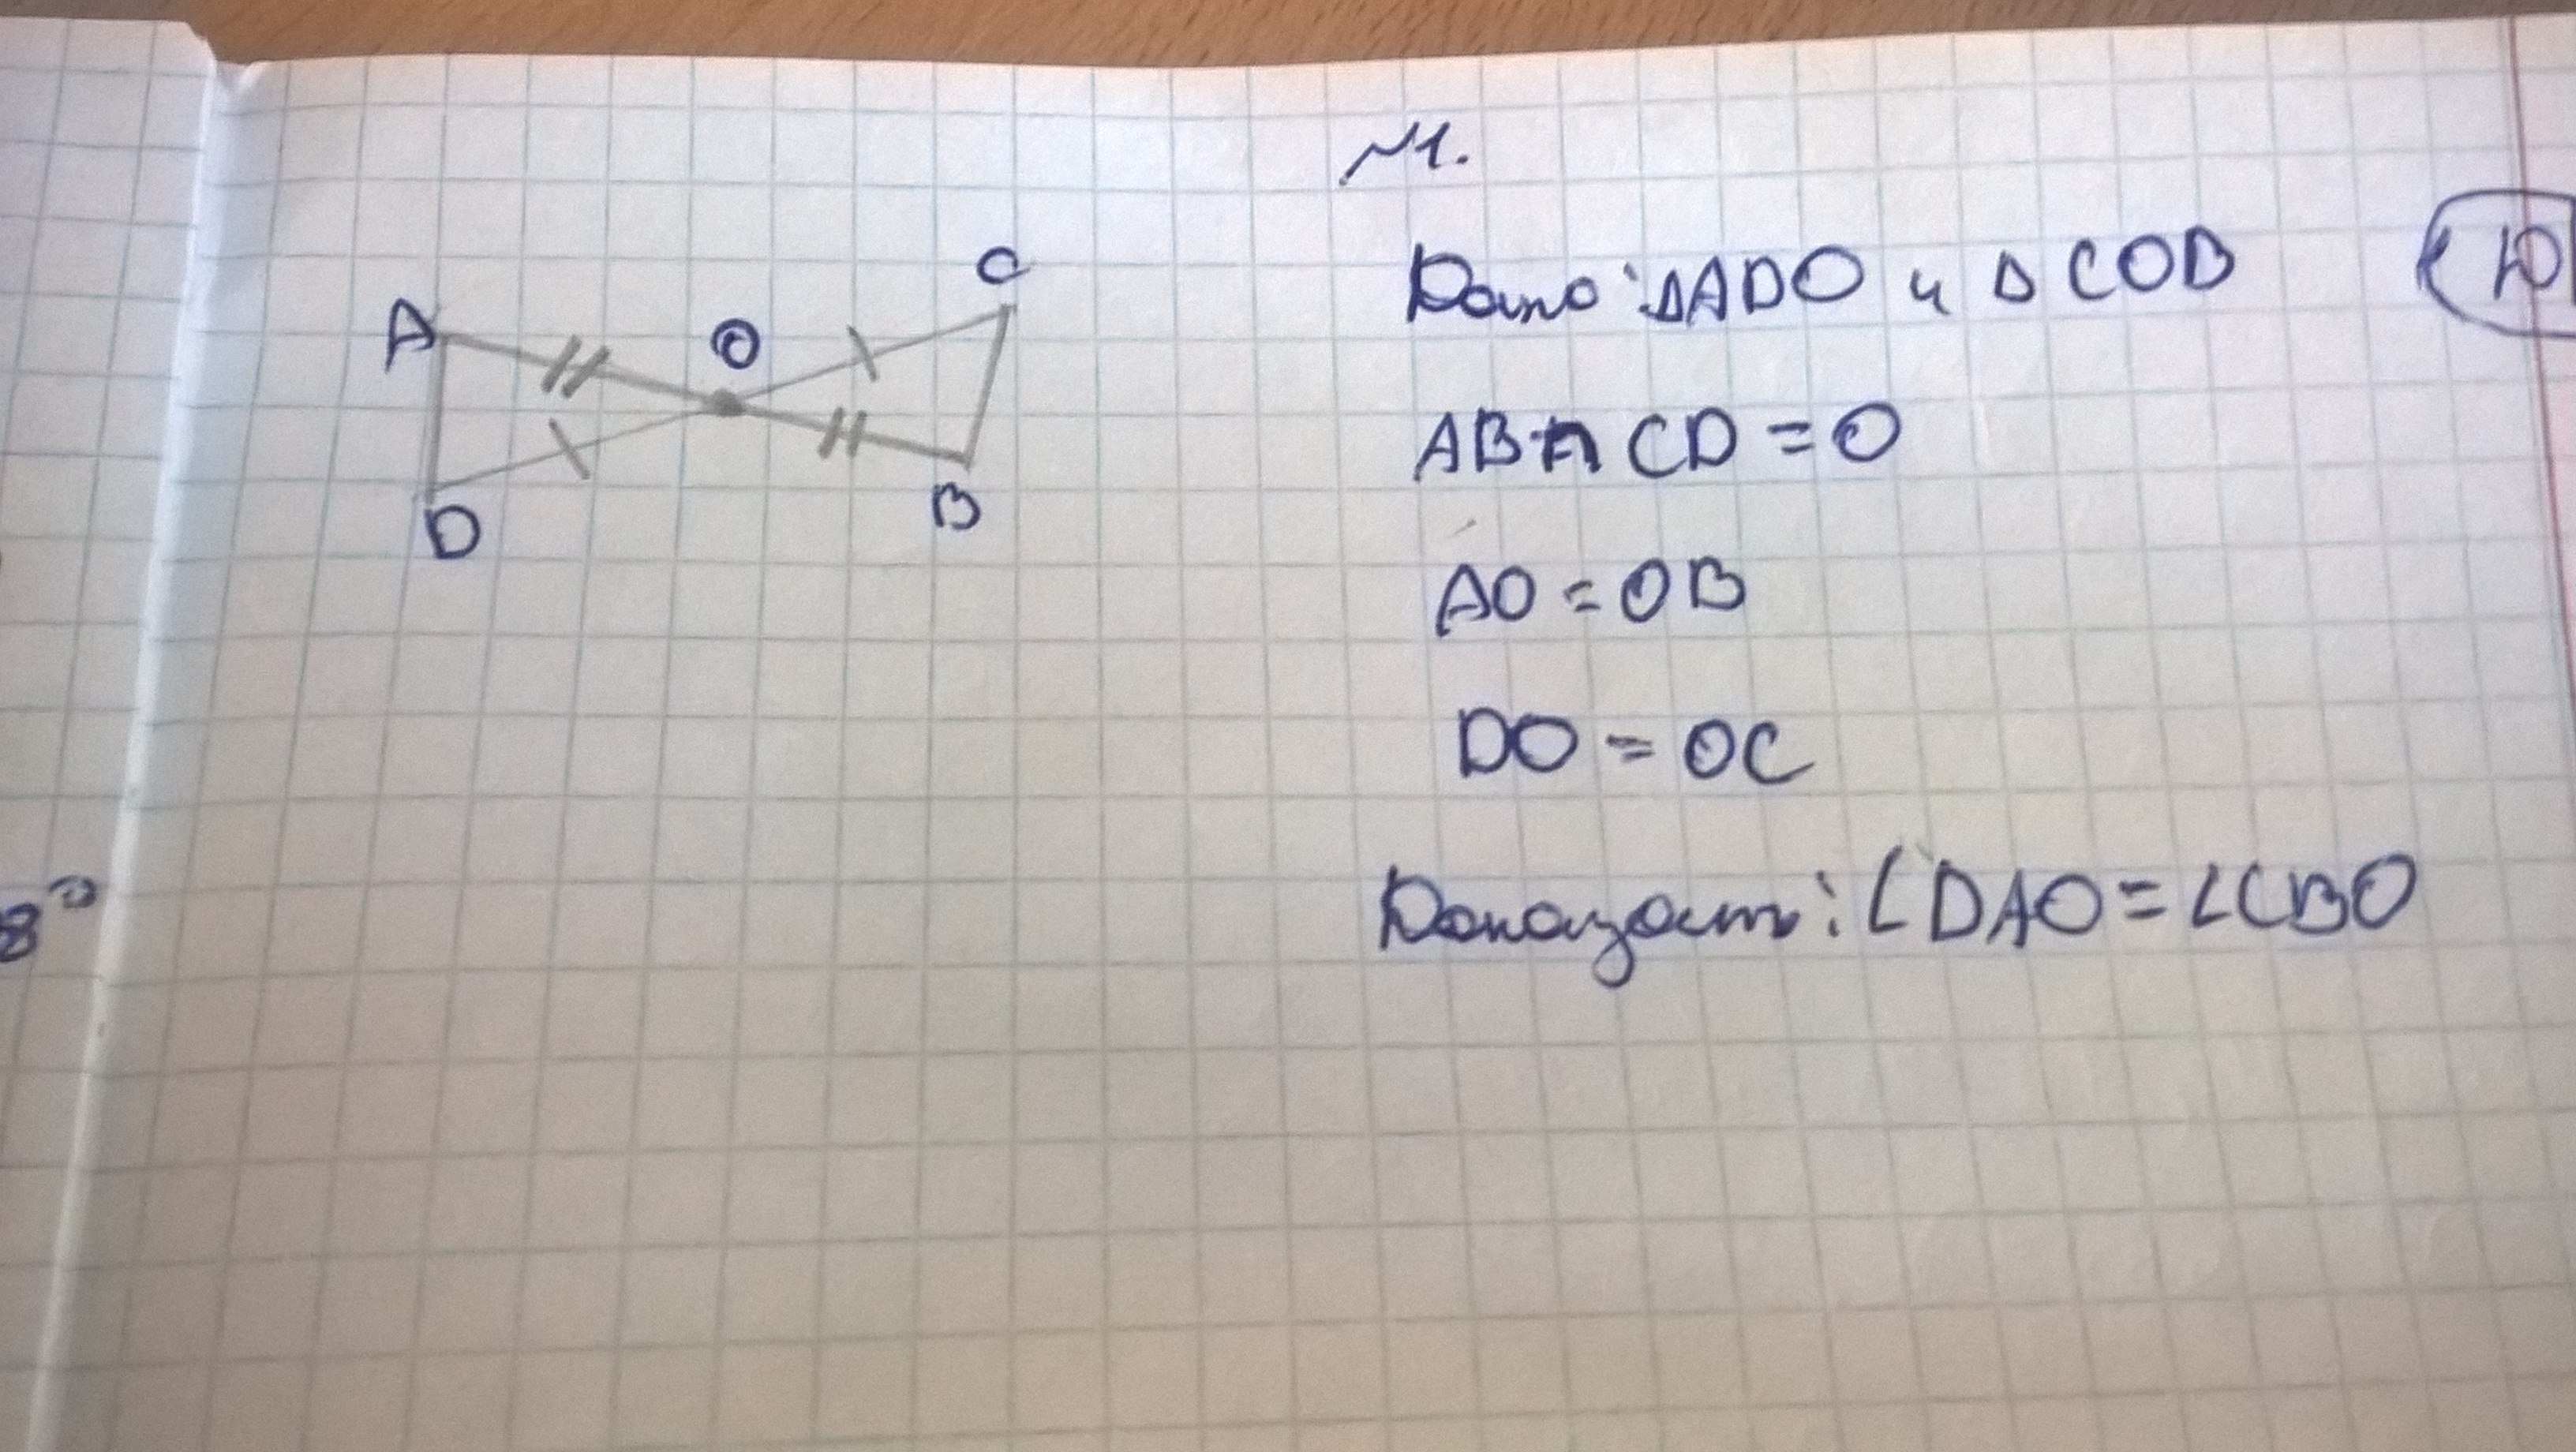 №1.
Дано: ΔADO и ΔCOB
Ю
AB ∩ CD = O
AO = OB
DO = OC
Доказать: ∠DAO = ∠CBO
A
O
C
D
B
8°